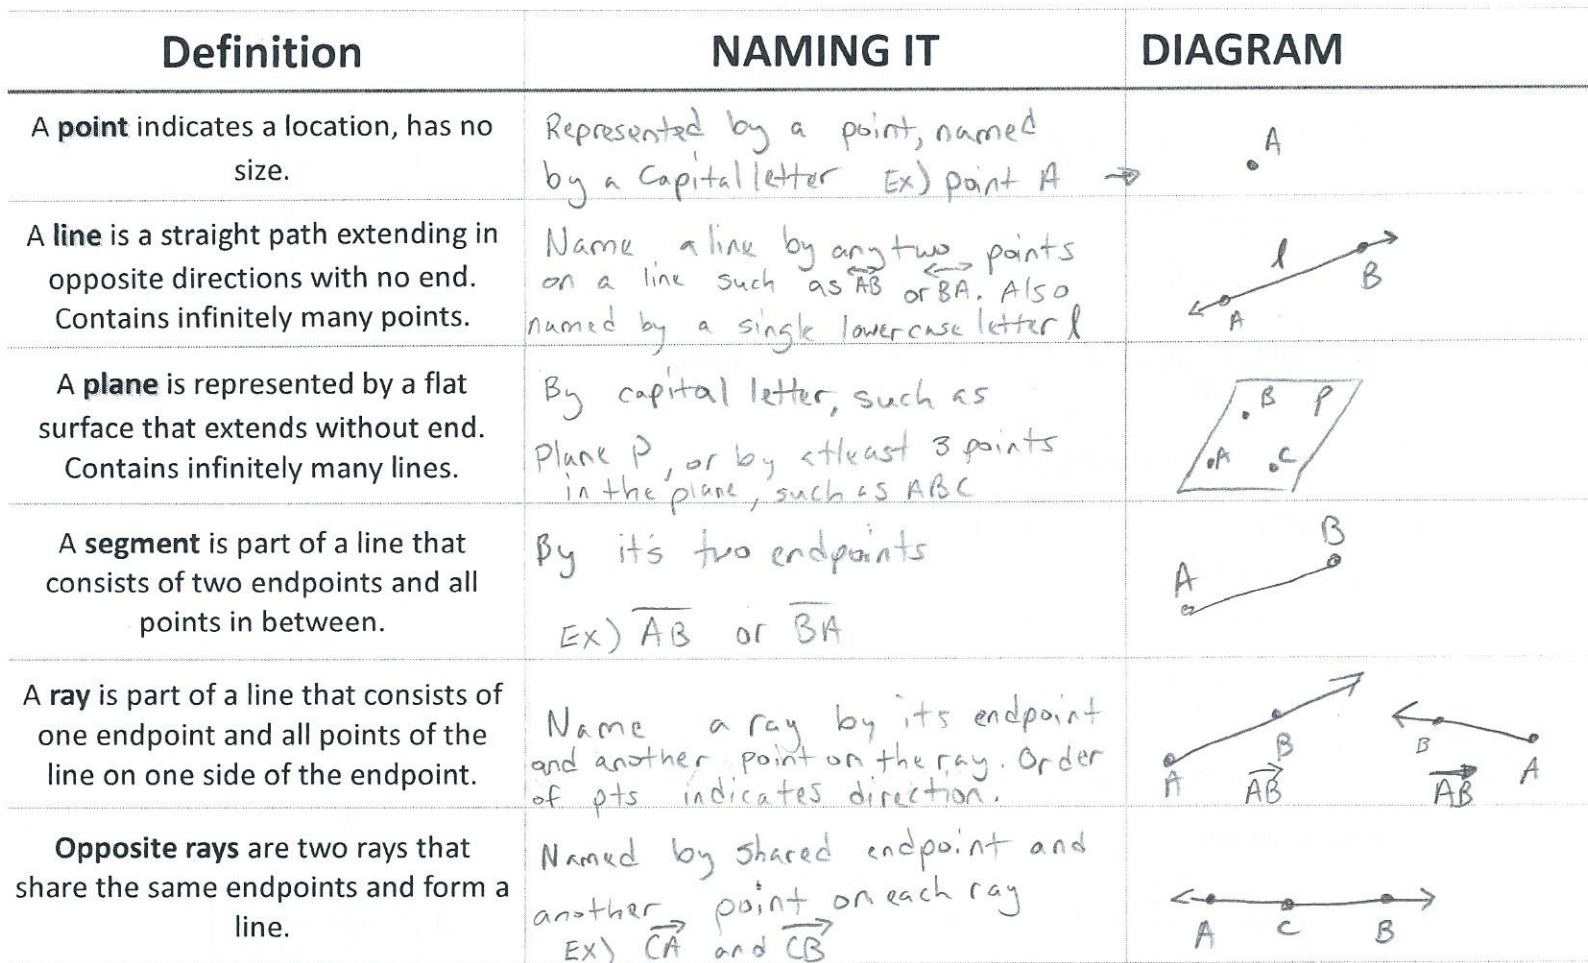 Definition NAMING IT DIAGRAM
A point indicates a location, has no
size.
Represented by a point, named
by a Capital letter Ex) point A →
A
A line is a straight path extending in
opposite directions with no end.
Contains infinitely many points.
Name a line by any two points
on a line such as \overleftrightarrow{AB} or \overleftrightarrow{BA}. Also
named by a single lowercase letter l
l
B
A
A plane is represented by a flat
surface that extends without end.
Contains infinitely many lines.
By capital letter, such as
Plane P, or by atleast 3 points
in the plane, such as ABC
B P
A C
A segment is part of a line that
consists of two endpoints and all
points in between.
By it's two endpoints
Ex) \overline{AB} or \overline{BA}
B
A
A ray is part of a line that consists of
one endpoint and all points of the
line on one side of the endpoint.
Name a ray by its endpoint
and another point on the ray. Order
of pts indicates direction.
B B
A A
\overrightarrow{AB} \overrightarrow{AB}
Opposite rays are two rays that
share the same endpoints and form a
line.
Named by shared endpoint and
another point on each ray
Ex) \overrightarrow{CA} and \overrightarrow{CB}
A C B